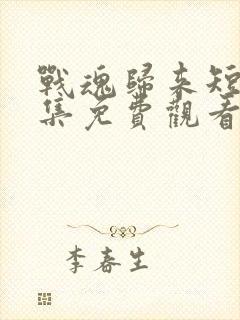 戰魂歸來短
集免費觀看
李春生